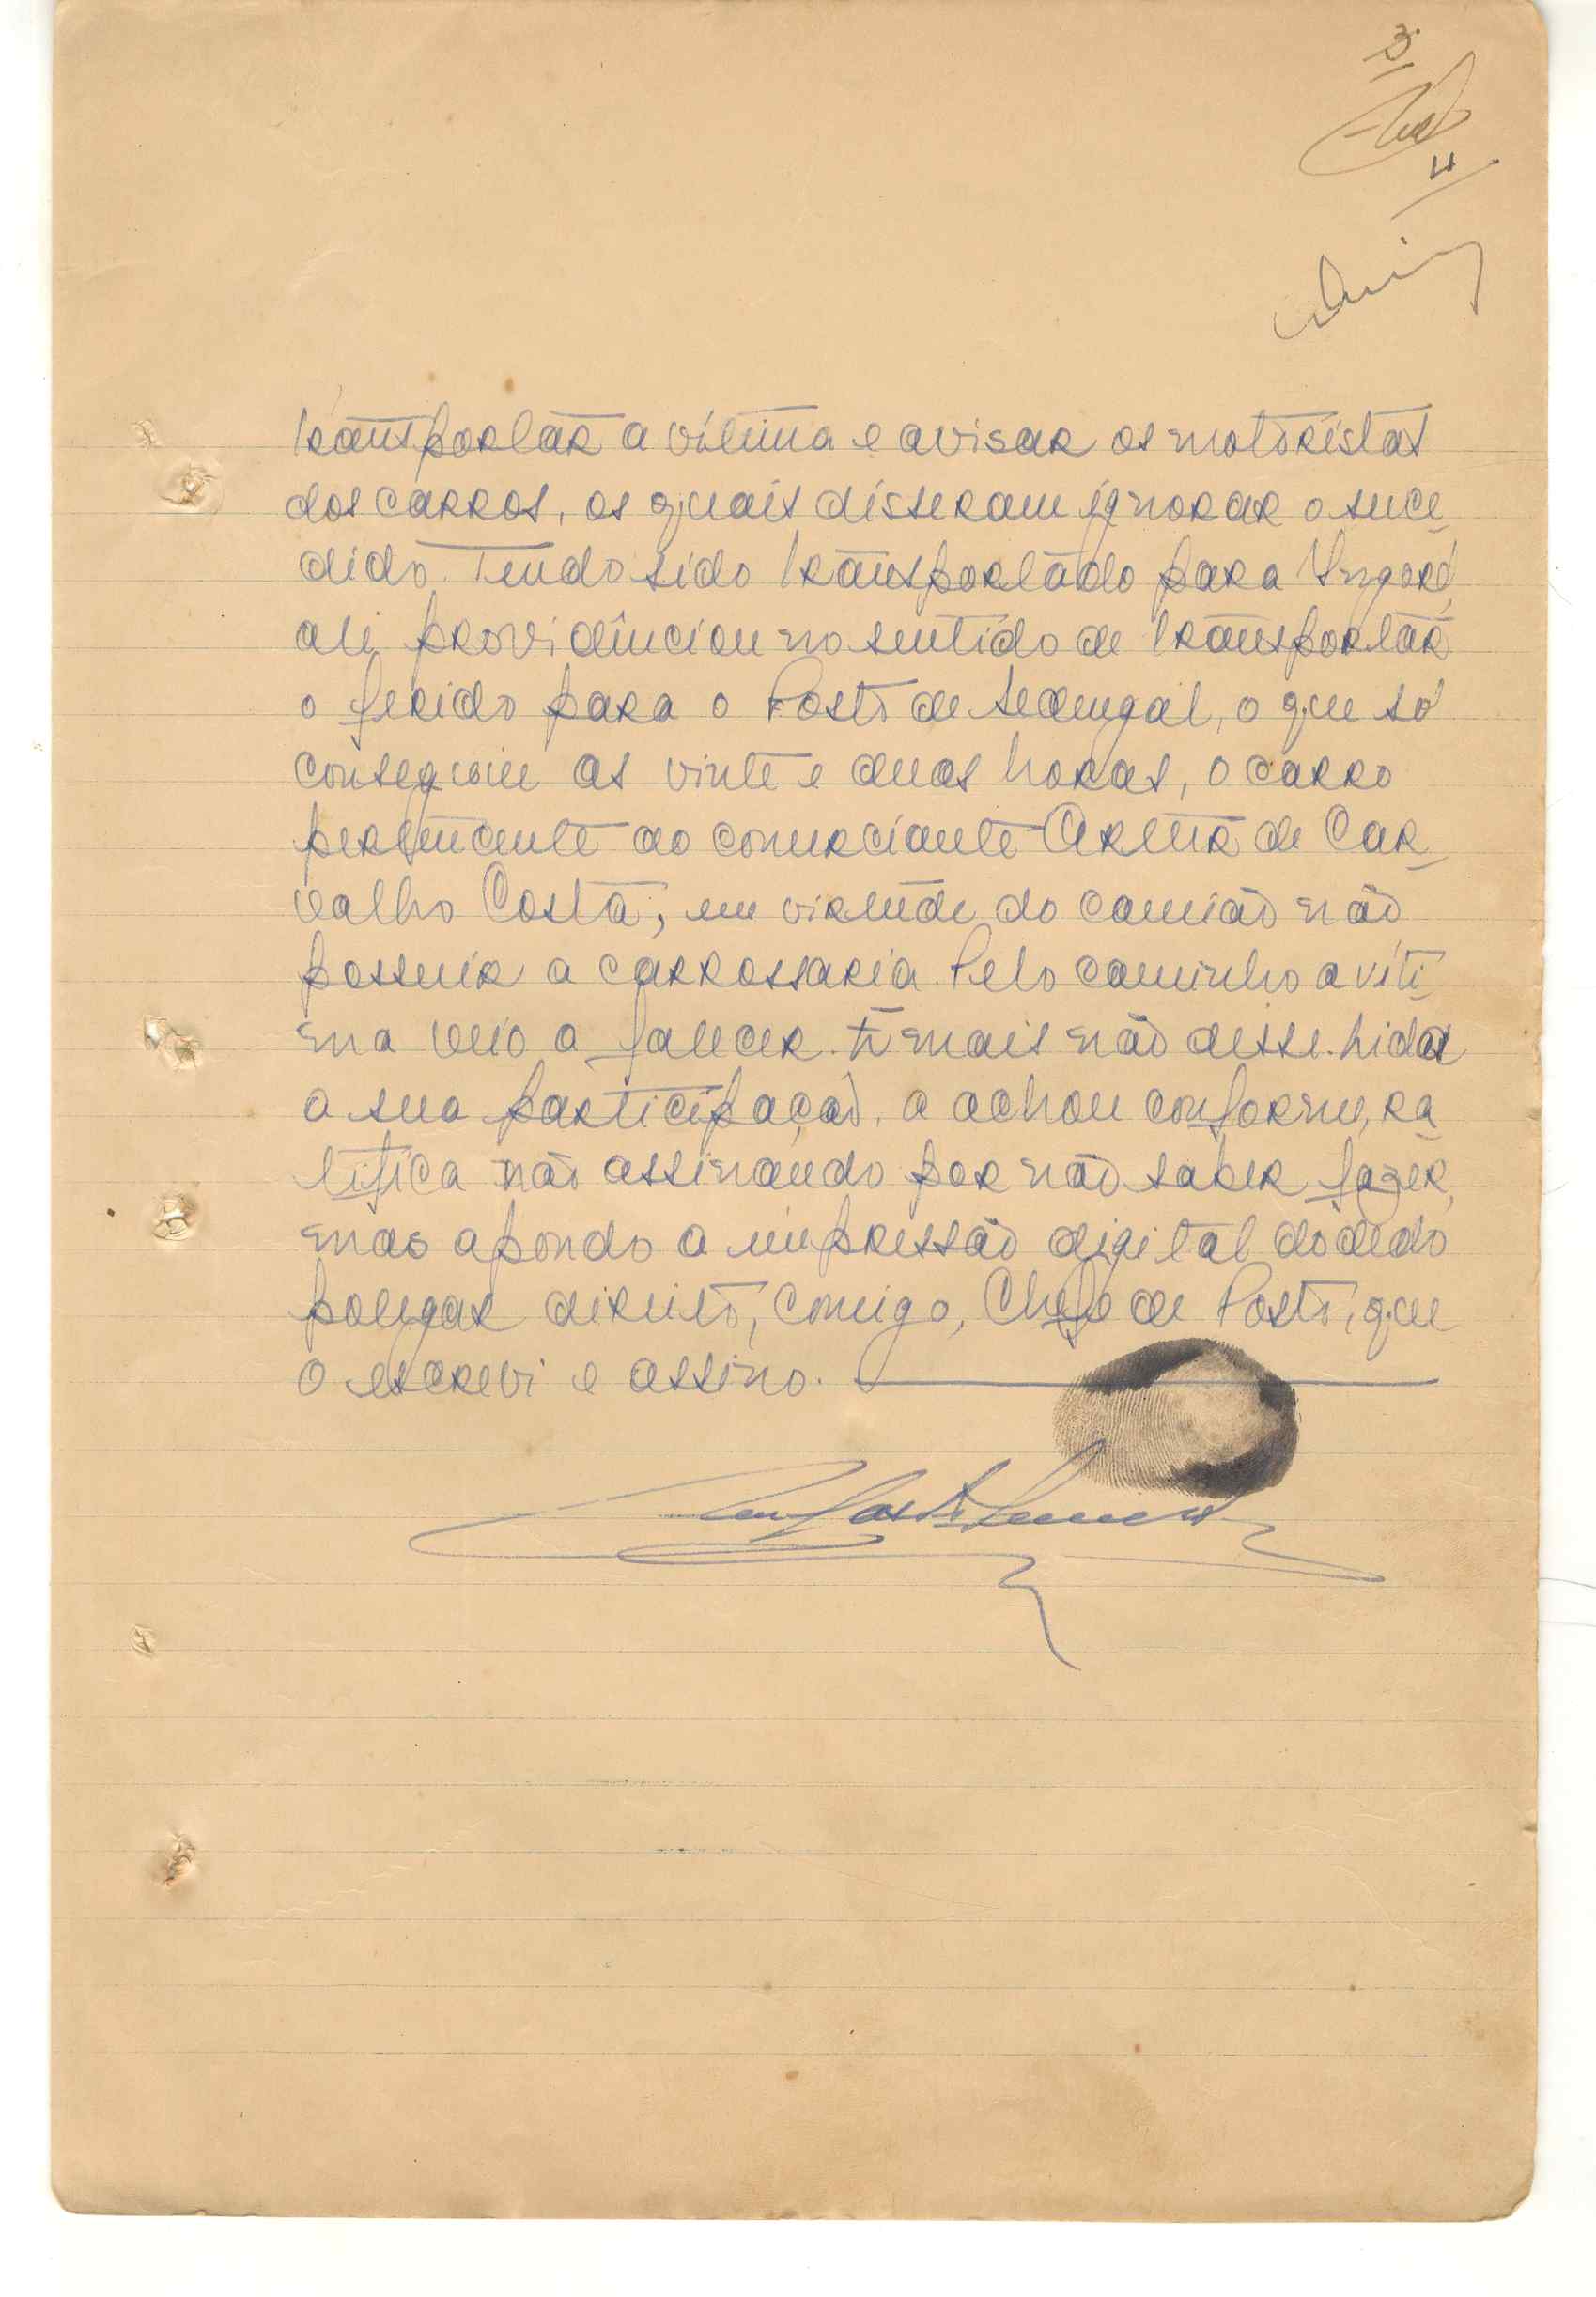 3
4
transportar a vitima e avisar os motoristas
dos carros, os quais disseram ignorar o suce_
dido. Tendo sido transportado para Ingoré,
ali providênciou no sentido de transportar
o ferido para o Posto de Sedengal, o que só
conseguiu as vinte e duas horas, o carro
pertencente ao comerciante Artur de Car_
valho Costa, em virtude do camião não
possuir a carrossaria. Pelo caminho a víti_
ma veio a falecer. E mais não disse. Lida
a sua participação, a achou conforme, ra_
tifica não assinando por não saber fazer,
mas apondo a impressão digital do dedo
polegar direito, comigo, Chefe de Posto, que
o escrevi e assino.